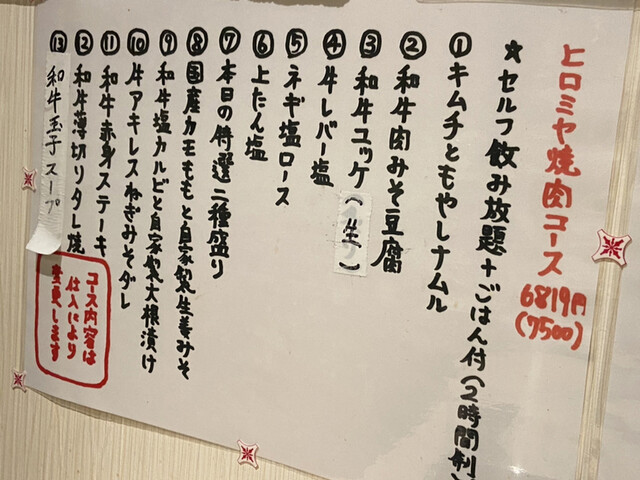 ヒロミヤ焼肉コース
6819円
(7500)
★セルフ飲み放題+ごはん付(2時間制)
①キムチともやしナムル
②和牛肉みそ豆腐
③和牛ユッケ(生)
④牛レバー塩
⑤ネギ塩ロース
⑥上たん塩
⑦本日の特選二種盛り
⑧国産カモももと自家製生姜みそ
⑨和牛塩カルビと自家製大根漬け
⑩牛アキレスねぎみそダレ
⑪和牛赤身ステーキ
⑫和牛薄切りタレ焼
⑬和牛玉子スープ
コース内容は
仕入により
変更します